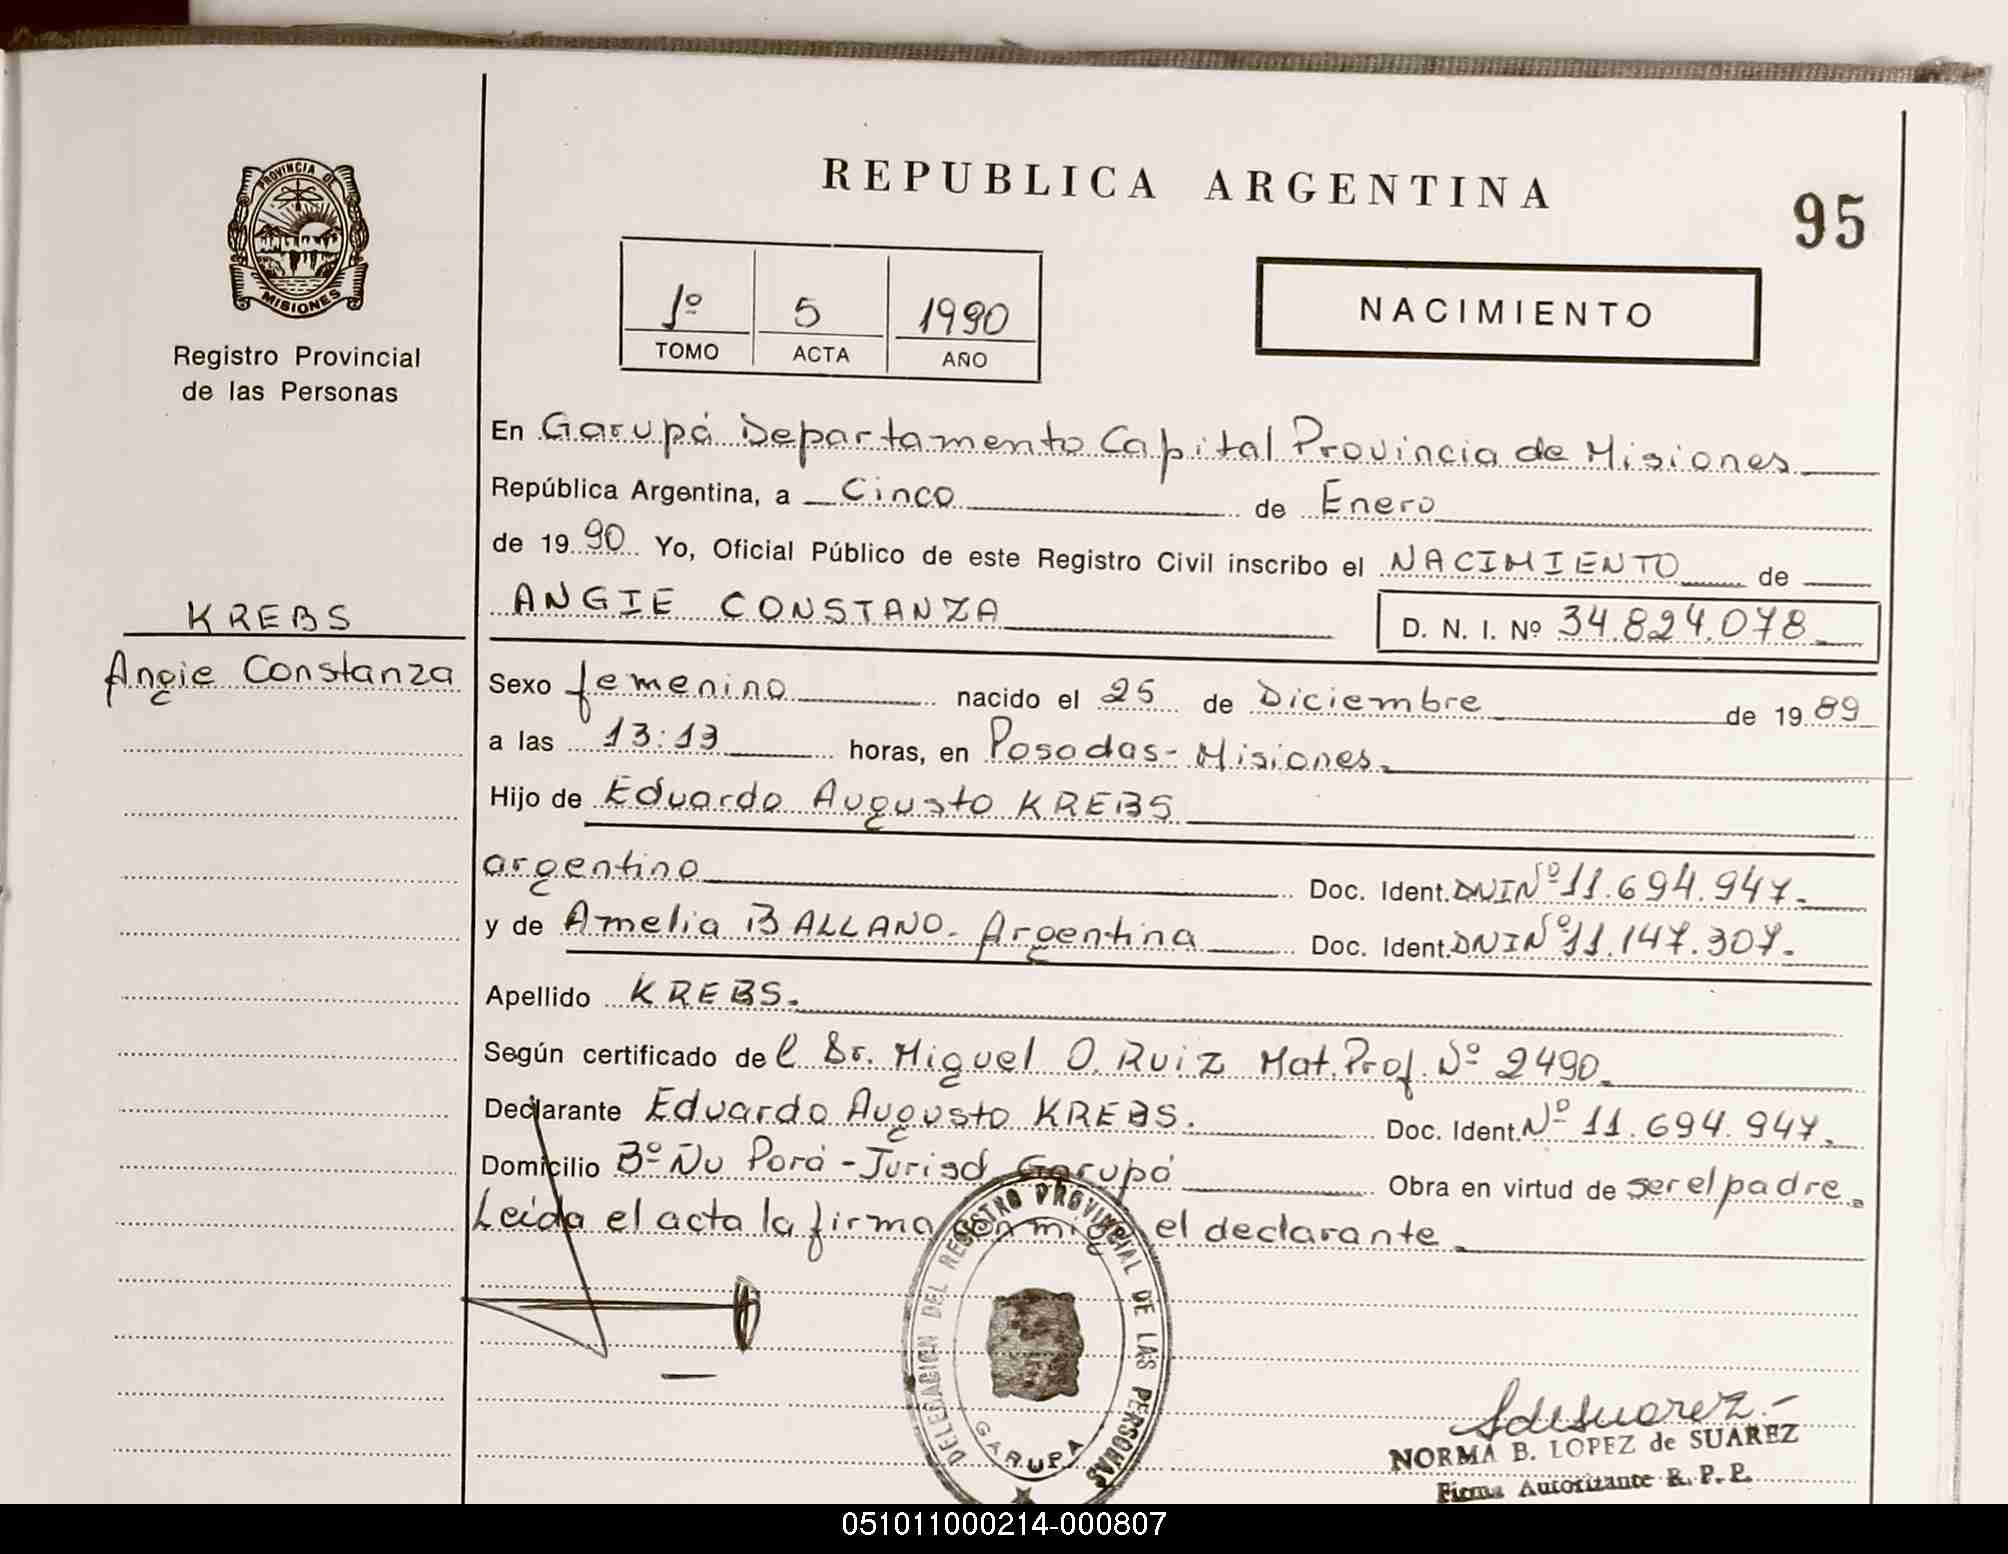 REPUBLICA ARGENTINA
95
PROVINCIA DE
MISIONES
Registro Provincial
de las Personas
1º 5 1990
TOMO ACTA AÑO
NACIMIENTO
En Garupá Departamento Capital Provincia de Misiones
República Argentina, a Cinco de Enero
de 1990 Yo, Oficial Público de este Registro Civil inscribo el NACIMIENTO de
ANGIE CONSTANZA D. N. I. Nº 34.824.078
KREBS
Angie Constanza
Sexo femenino nacido el 25 de Diciembre de 1989
a las 13:13 horas, en Posadas - Misiones.
Hijo de Eduardo Augusto KREBS
argentino Doc. Ident. DNI Nº 11.694.947.
y de Amelia BALLANO. Argentina Doc. Ident. DNI Nº 11.147.307.
Apellido KREBS.
Según certificado del Dr. Miguel O. Ruiz Mat. Prof. Nº 2490.
Declarante Eduardo Augusto KREBS. Doc. Ident. Nº 11.694.947.
Domicilio Bº Ñu Porá - Jurisd. Garupá Obra en virtud de ser el padre.
Leída el acta la firma con migo el declarante
DELEGACION DEL REGISTRO PROVINCIAL DE LAS PERSONAS
GARUPA
NORMA B. LOPEZ de SUAREZ
Firma Autorizante R. P. P.
051011000214-000807